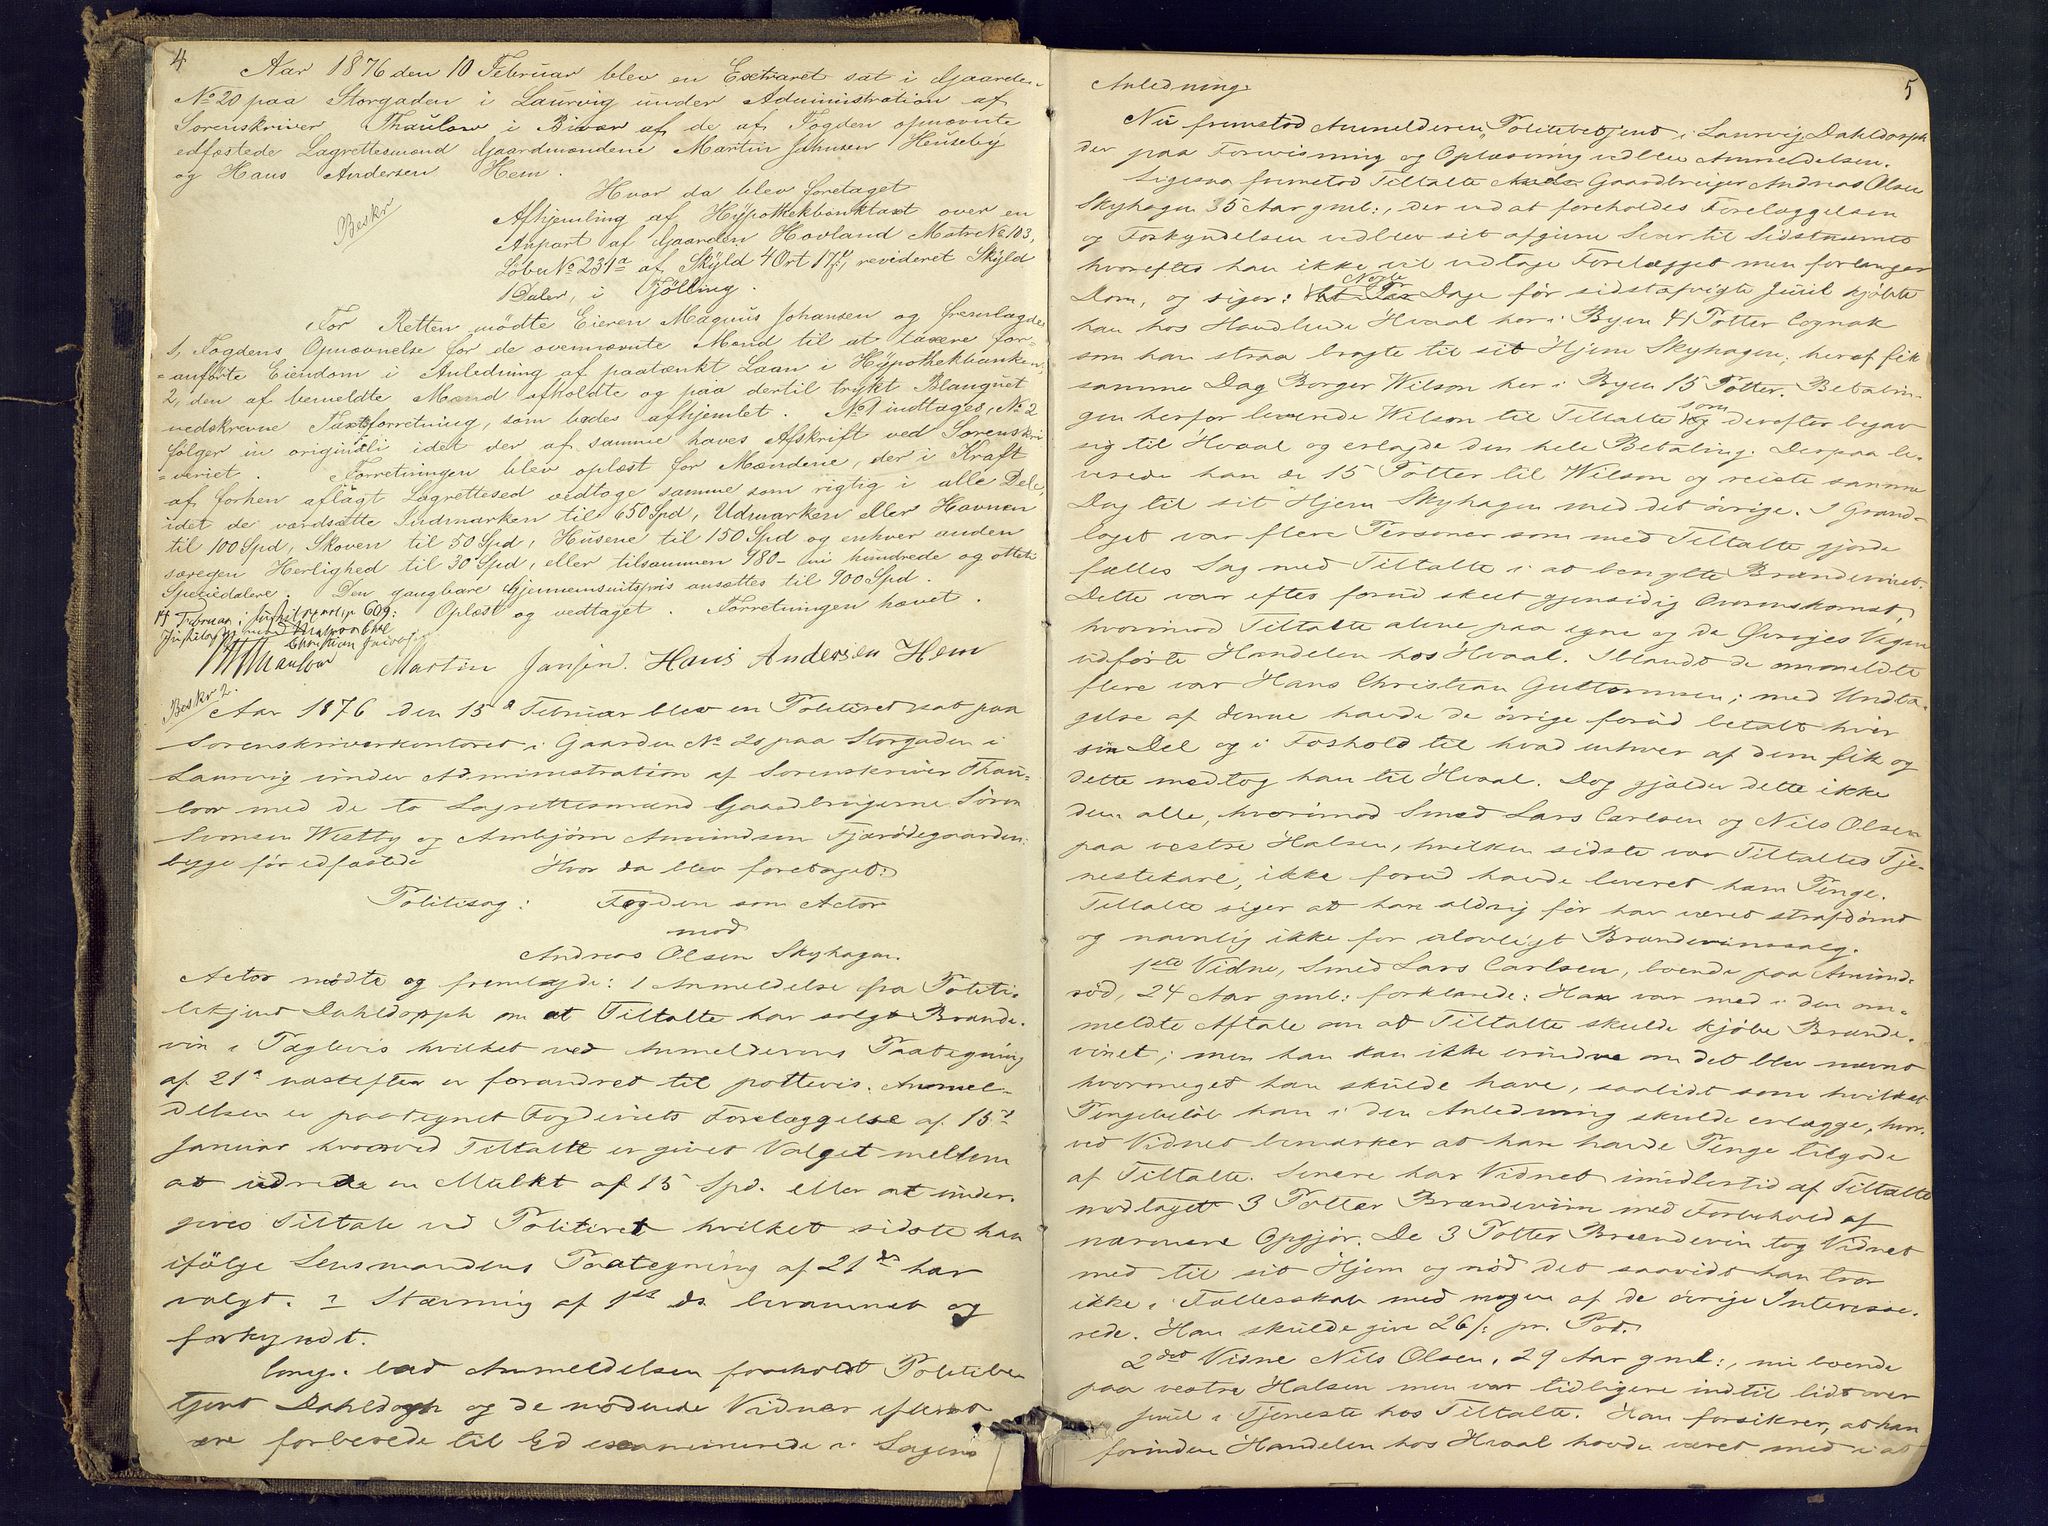 4
Aar 1876 den 10 Februar blev en Extraret sat i Gaarden
No 20 paa Storgaden i Laurvig under Administration af
Sorenskriver Thaulow i Bivær af de af Fogden opnævnte
edfæstede Lagrettesmænd Gaardmændene Martin Jahnsen Heuseby
og Hans Andersen Hem.
Hvor da blev foretaget
Beskr
Afhjemling af Hypothekbanktaxt over en
Anpart af Gaarden Hovland Matr No 103,
Løbe No 231a af Skyld 4 Ort 17 revideret Skyld
1 Daler, i Tjølling.
For Retten mødte Eieren Magnus Johansen og fremlagde
1, Fogdens Opnævnelse for de ovennævnte Mænd til at taxere for-
=anførte Eiendom i Anledning af paatænkt Laan i Hypothekbanken,
2, den af bemeldte Mænd afholdte og paa dertil trykt Blanquet
nedskrevne Taxtforretning, som bedes afhjemlet. No 1 indtages, No 2
følger in originali idet der af samme haves Afskrift ved Sorenskri
=veriet. Forretningen blev oplæst for Mændene, der i Kraft
af forhen aflagt Lagrettesed vedtoge samme som rigtig i alle Dele,
idet de værdsætte Indmarken til 650 Spd, Udmarken eller Havnen
til 100 Spd, Skoven til 50 Spd, Husene til 150 Spd og enhver anden
særegen Herlighed til 30 Spd, eller tilsammen 980 - ni hundrede og otteti
Speciedalere. Den gangbare Gjennemsnitspris ansættes til 900 Spd.
Oplæst og vedtaget. Forretningen hævet.
14 Februar i 609:
Christian
Thaulow Martin Jansen. Hans Andersen Hem
Beskr 2.
Aar 1876 den 15d Februar blev en Politiret sat paa
Sorenskriverkontoret i Gaarden No 20 paa Storgaden i
Laurvig under Administration af Sorenskriver Thau-
low med de to Lagrettesmænd Gaardbrugerne Søren
Simonsen Westby og Anbjørn Amundsen Fjærødegaarden:
begge før edfæstede Hvor da blev foretaget:
Politisag: Fogden som Actor
mod
Andreas Olsen Skyhagen.
Actor mødte og fremlagde: 1 Anmeldelse fra Politi-
betjent Dahldorph om at Tiltalte har solgt Brænde-
vin i Paglevis hvilket ved Anmelderens Paategning
af 21d næstefter er forandret til pottevis. Anmel-
delsen er paategnet Fogderiets Forelæggelse af 15d
Januar hvorved Tiltalte er givet Valget mellem
at udrede en Mulkt af 15 Spd. eller at under-
gives Tiltale ved Politiret hvilket sidste han
ifølge Lensmandens Paategning af 21de har
valgt. 2 Stævning af 1ste ds berammet og
forkyndt.
Comp. bad Anmeldelsen foreholdt Politibe
tjent Dahldorph og de mødende Vidner efter at
være forberede til Ed examinerede i Sagens
5
Anledning.
Nu fremstod Anmelderen, Politibetjent i Laurvig, Dahldorph
der paa Forevisning og Oplæsning vedblev Anmeldelsen.
Ligesaa fremstod Tiltalte Gaardbruger Andreas Olsen
Skyhagen 35 Aar gml:, der ved at foreholdes Forelæggelsen
og Forkyndelsen vedblev sit afgivne Svar til Sidstnævnte
hvorefter han ikke vil vedtage Forelægget men forlanger
Dom, og siger: Nogle Dage før sidstafvigte Juul kjøbte
han hos Handlende Hvaal her i Byen 41 Potter Cognak
som han straa bragte til sit Hjem Skyhagen; heraf fik
samme Dag Borger Wilson her i Byen 15 Potter. Betalin-
gen herfor leverede Wilson til Tiltalte som derefter begav
sig til Hvaal og erlagde den hele Betaling. Derpaa le-
verede han de 15 Potter til Wilson og reiste samme
Dag til sit Hjem Skyhagen med det øvrige. I Grand-
laget var flere Personer som med Tiltalte gjorde
fælles Sag med Tiltalte i at benytte Brændevinet.
Dette var efter forud skeet gjensidig Overenskomst,
hvorimod Tiltalte alene paa egne og de Øvriges Vegne
udførte Handelen hos Hvaal. Iblandt de anmeldte
flere var Hans Christian Guttormsen; med Undta-
gelse af denne havde de øvrige forud betalt hver
sin Del og i Forhold til hvad enhver af dem fik og
dette medtog han til Hvaal. Dog gjelder dette ikke
dem alle, hvorimod Smed Lars Carlsen og Nils Olsen
paa vestre Halsen, hvilken sidste var Tiltaltes Tje-
nestekarl, ikke forud havde leveret ham Penge.
Tiltalte siger at han aldrig før har været strafdømt
og navnlig ikke for ulovligt Brændevinssalg.
1ste Vidne, Smed Lars Carlsen, boende paa Amund-
rød, 24 Aar gml: forklarede: Han var med i den om-
meldte Aftale om at Tiltalte skulde kjøbe Brænde-
vinet; men han kan ikke erindre om det blev nævnt
hvormeget han skulde have, saalidt som hvilket
Pengebeløb han i den Anledning skulde erlægge, hvor-
ved Vidnet bemærker at han havde Penge tilgode
af Tiltalte. Senere har Vidnet imidlertid af Tiltalte
modtaget 3 Potter Brændeviin med Forbehold af
nærmere Opgjør. De 3 Potter Brændevin tog Vidnet
med til sit Hjem og nød det saavidt han tror
ikke i Fællesskab med nogen af de øvrige Interesse-
rede. Han skulde give 26/: pr. Pot.
2det Vidne Nils Olsen, 29 Aar gml:, nu boende
paa vestre Halsen men var tidligere indtil lidt over
Juul i Tjeneste hos Tiltalte. Han forsikrer, at han
forinden Handelen hos Hvaal havde været med i at